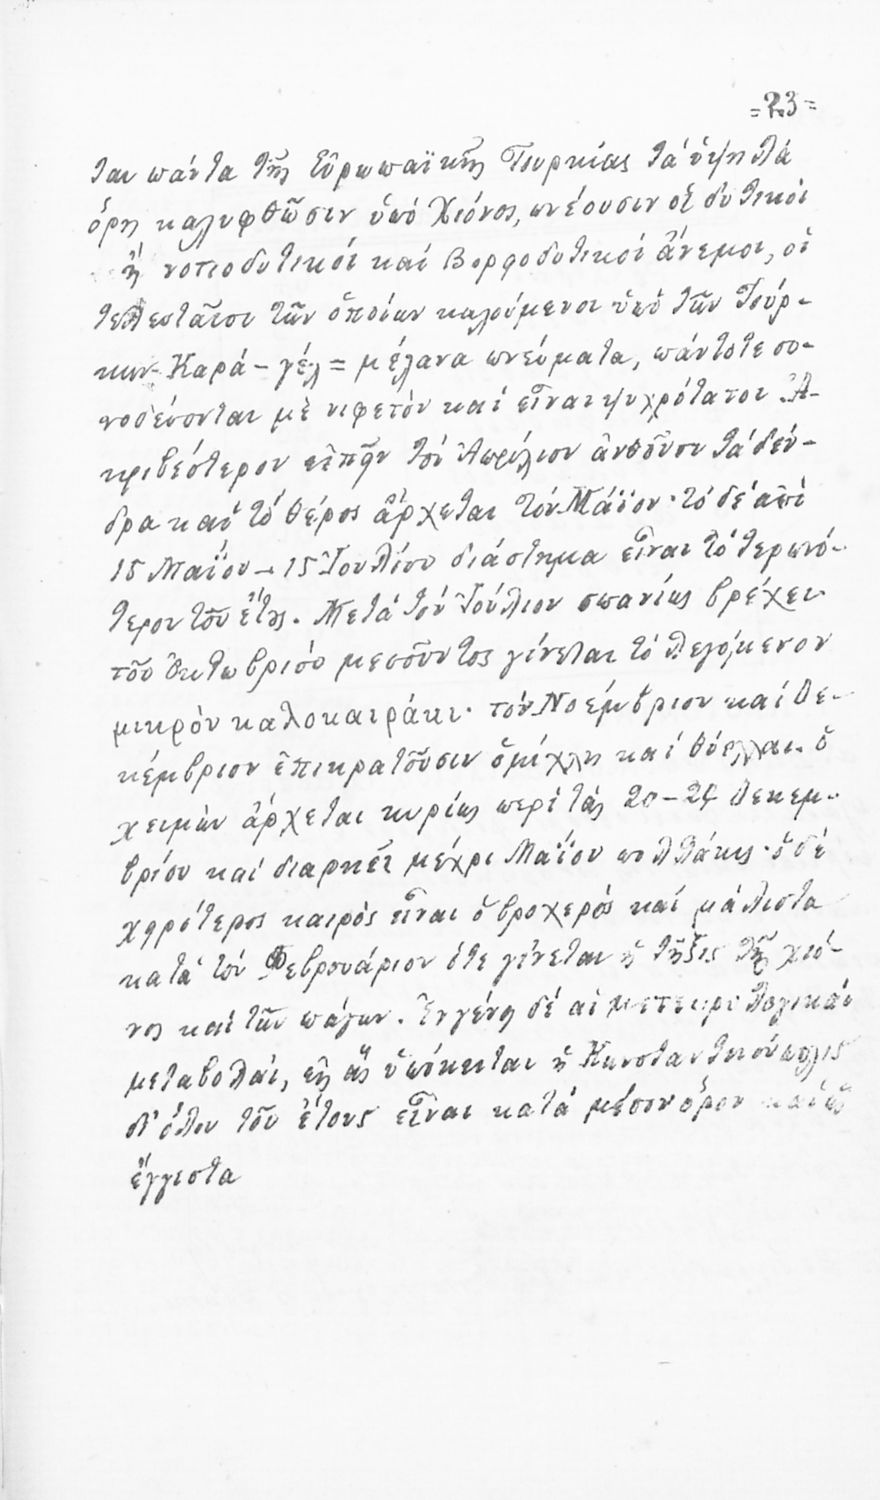 =23=
ται πάντα τῆς Εὐρωπαϊκῆς Τουρκίας τὰ ὑψηλὰ
ὄρη καλυφθῶσιν ὑπὸ χιόνος, πνέουσιν οἱ δυτικοὶ
ἢ νοτιοδυτικοί καί βορροδυτικοί ἄνεμοι, οἱ
τελευταῖοι τῶν ὁποίων καλούμενοι ὑπὸ τῶν Τούρ-
κων Καρά-γέλ = μέλανα πνεύματα, πάντοτε συ-
νοδεύονται μὲ νιφετὸν καί εἶναι ψυχρότατοι. Ἀ-
κριβέστερον εἰπεῖν τὸν Ἀπρίλιον ἀνθοῦσι τὰ δέν-
δρα καί τὸ θέρος ἄρχεται τὸν Μάϊον· τὸ δὲ ἀπὸ
15 Μαΐου – 15 Ἰουλίου διάστημα εἶναι τὸ τερπνό-
τερον τοῦ ἔτους. Μετὰ τὸν Ἰούλιον σπανίως βρέχει·
τοῦ Ὀκτωβρίου μεσοῦντος γίνεται τὸ λεγόμενον
μικρὸν καλοκαιράκι· τὸν Νοέμβριον καί Δε-
κέμβριον ἐπικρατοῦσιν ὀμίχλη καί θύελλαι. ὁ
χειμὼν ἄρχεται κυρίως περὶ τὰς 20-24 Δεκεμ-
βρίου καί διαρκεῖ μέχρι Μαΐου πολλάκις· ὁ δὲ
χειρότερος καιρὸς εἶναι ὁ βροχερὸς καί μάλιστα
κατὰ τὸν Φεβρουάριον ὅτε γίνεται ἡ τῆξις τῆς χιό-
νος καί τῶν πάγων. Ἐν γένει δὲ αἱ μετεωρολογικαὶ
μεταβολαί, εἰς ἃς ὑπόκειται ἡ Κωνσταντινούπολις
δι' ὅλου τοῦ ἔτους εἶναι κατὰ μέσον ὅρον καὶ ὡς
ἔγγιστα